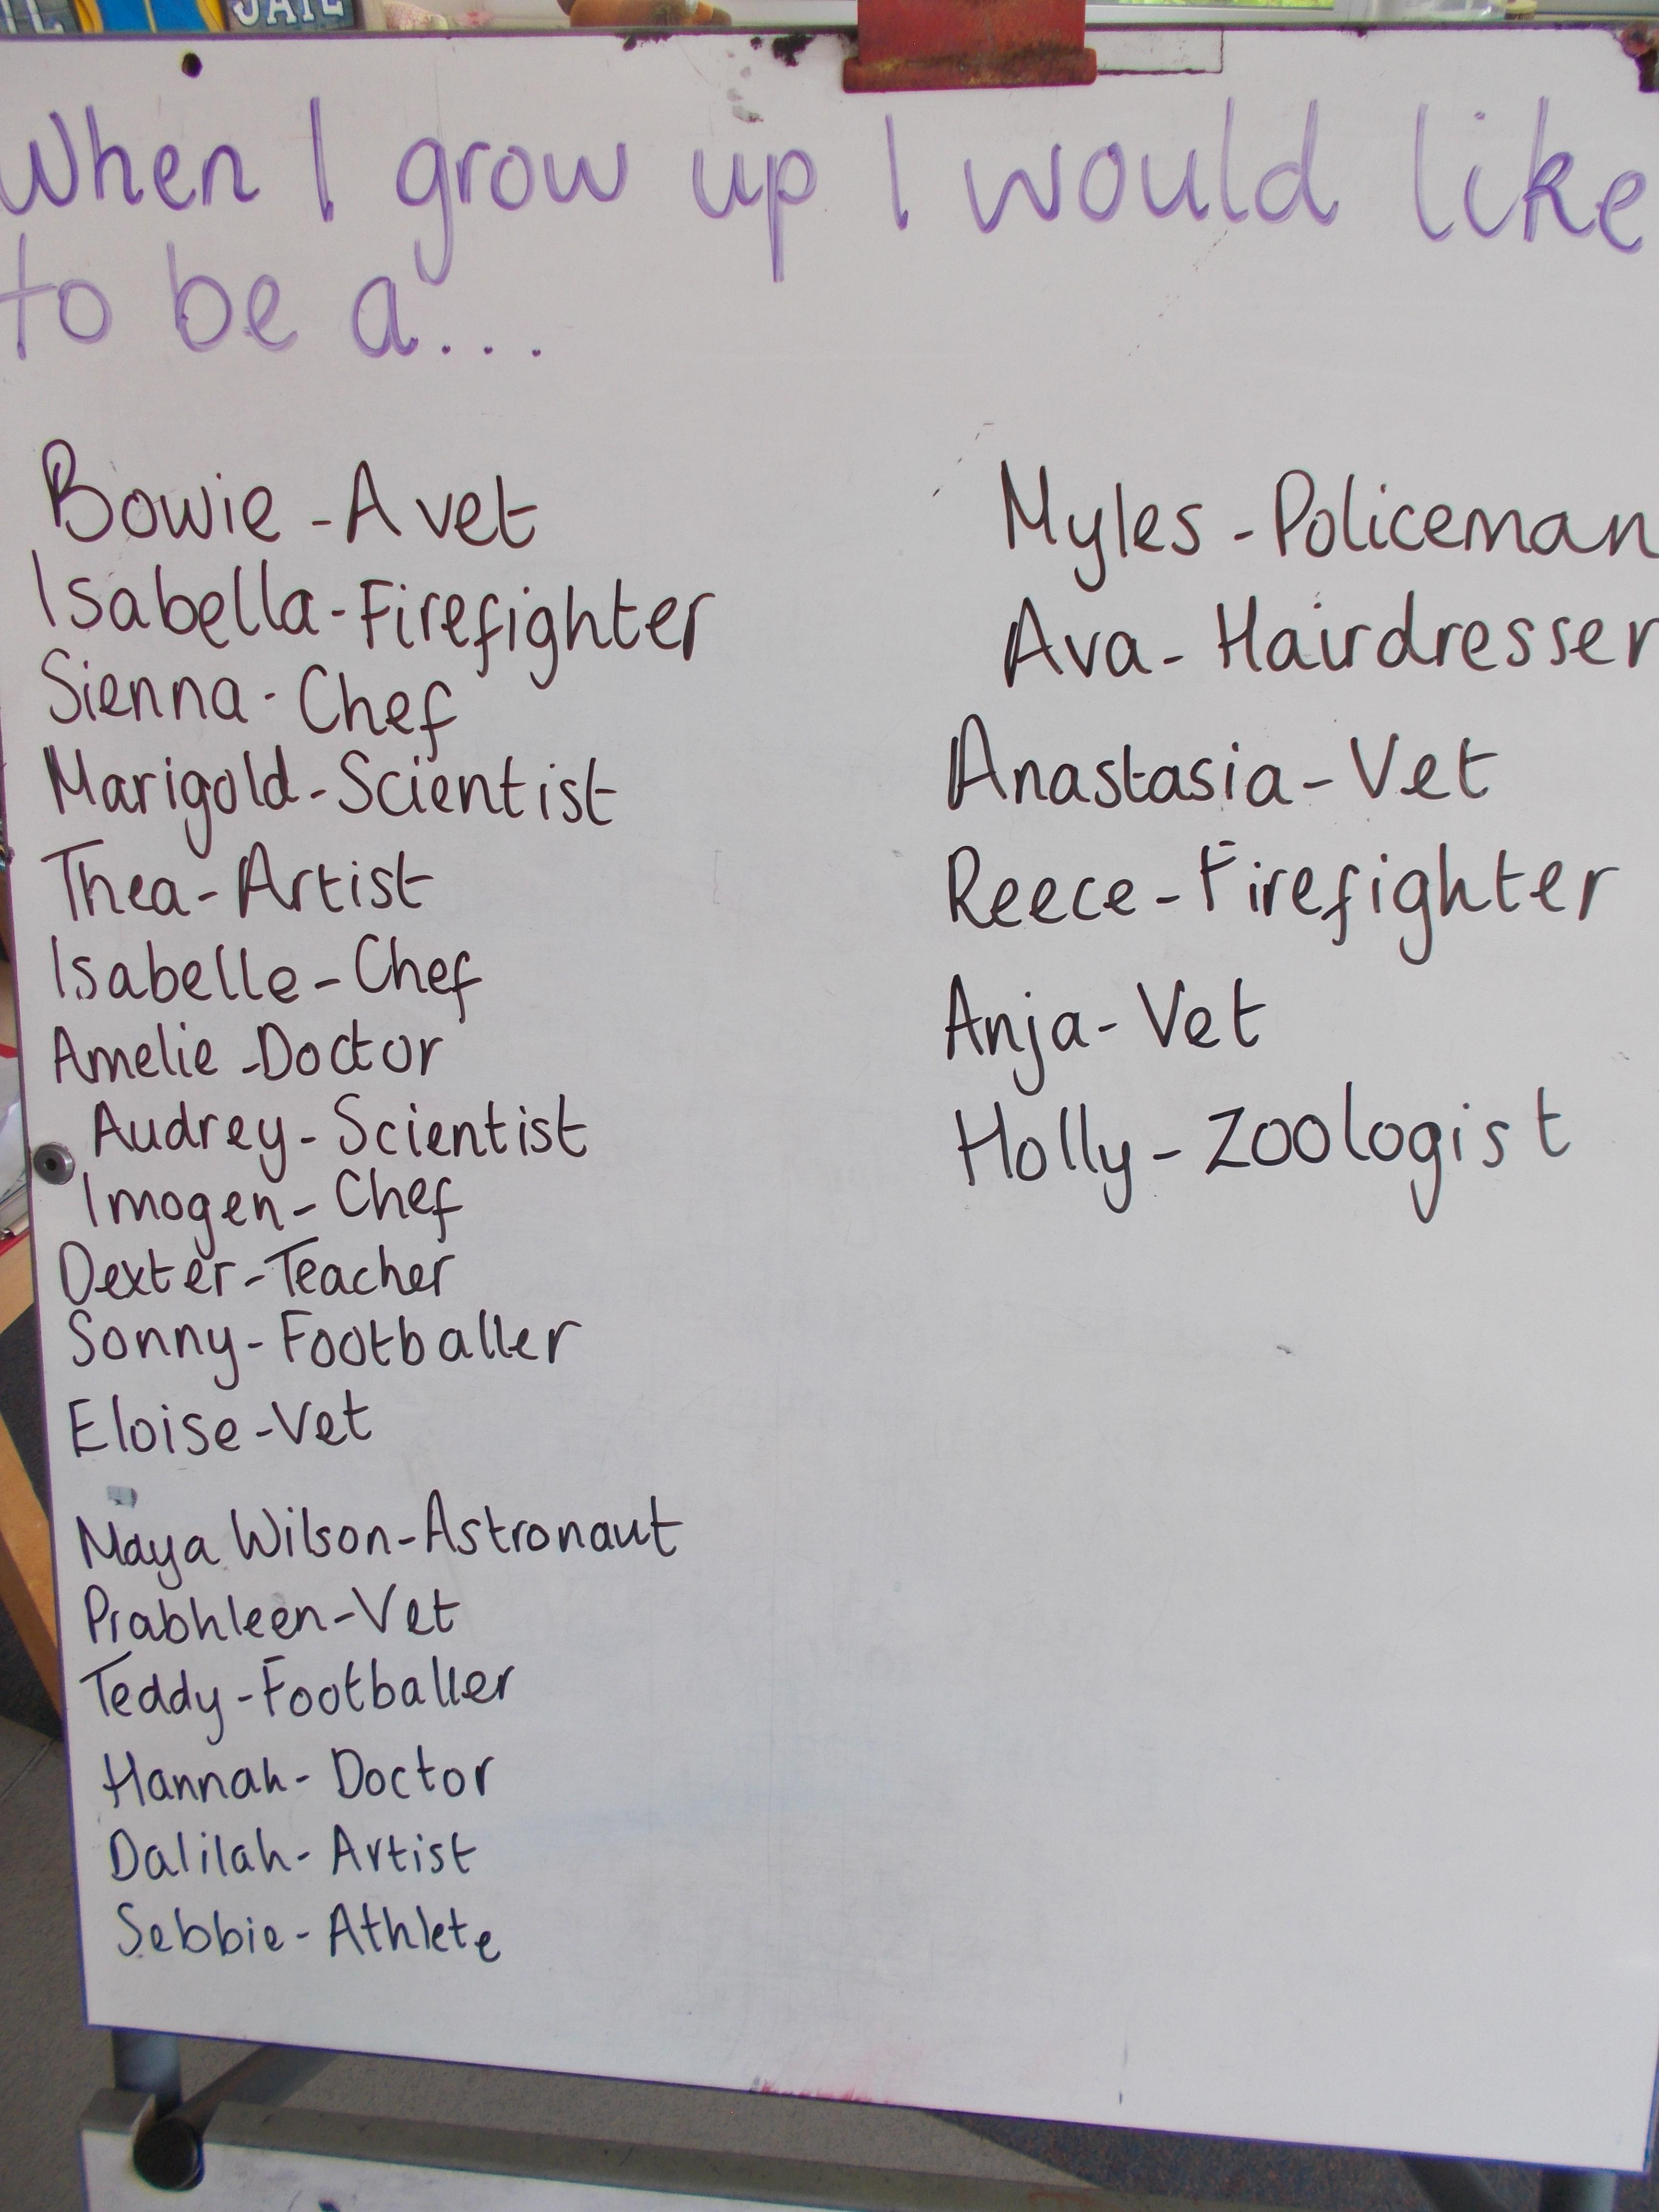 JAIL
When I grow up I would like
to be a...
Bowie - A vet
Isabella - Firefighter
Sienna - Chef
Marigold - Scientist
Thea - Artist
Isabelle - Chef
Amelie - Doctor
Audrey - Scientist
Imogen - Chef
Dexter - Teacher
Sonny - Footballer
Eloise - Vet
Maya Wilson - Astronaut
Prabhleen - Vet
Teddy - Footballer
Hannah - Doctor
Dalilah - Artist
Sebbie - Athlete
Myles - Policeman
Ava - Hairdresser
Anastasia - Vet
Reece - Firefighter
Anja - Vet
Holly - Zoologist